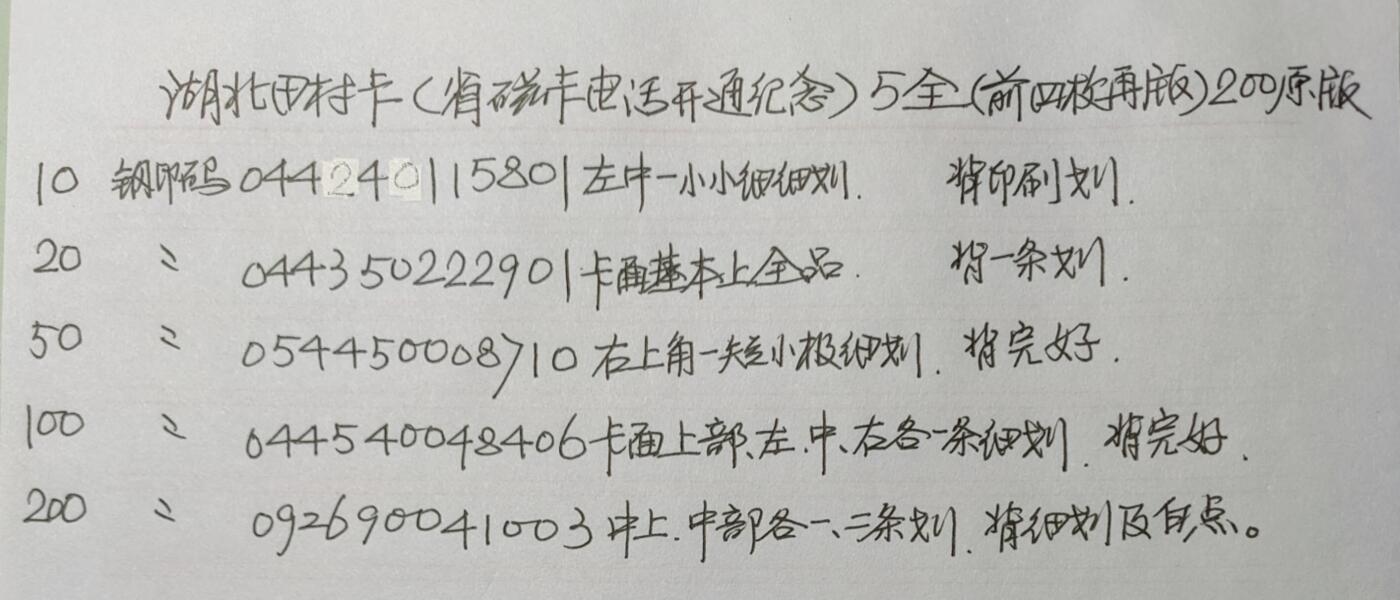 湖北田村卡(省磁卡电话开通纪念)5全(前四枚再版)200原版
10 钢印码 044240115801 左中一小小细细划. 背印刷划.
20 〃 044350222901 卡面基本上全品. 背一条划.
50 〃 054450008710 右上角一短小极细划. 背完好.
100 〃 044540048406 卡面上部、左、中、右各一条细划. 背完好.
200 〃 092690041003 中上.中部各一、二条划. 背细划及白点。